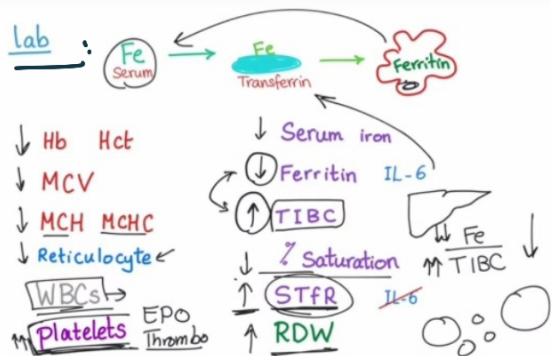 lab :
Fe
Serum
Fe
Transferrin
Ferritin
↓ Hb Hct
↓ MCV
↓ MCH MCHC
↓ Reticulocyte ↙
WBCs →
↑↑ Platelets
EPO
Thrombo
↓ Serum iron
↓ Ferritin IL-6
↑ TIBC
↓ % Saturation
↑ STfR IL-6
↑ RDW
↓↓ Fe
↑↑ TIBC ↓